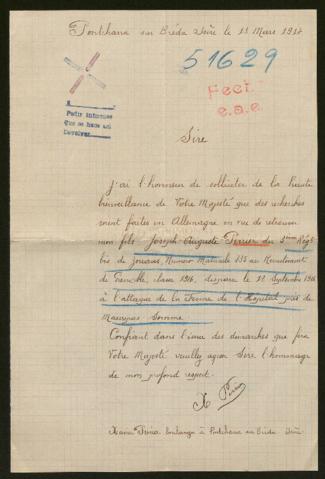 Pontcharra sur Bréda Isère le 11 Mars 1917
51629
Fect.
e.a.e.
Pedir informes
Que se hace así
Devolver
Sire
J'ai l'honneur de solliciter de la haute
bienveillance de Votre Majesté que des recherches
soient faites en Allemagne en vue de retrouver
mon fils Joseph Auguste Perrier du 3ème Régt
bis de Zouaves, Numéro Matricule 835 au Recrutement
de Grenoble, classe 1916, disparu le 11 Septembre 1916
à l'attaque de la Ferme de l'Hopital près de
Maurepas Somme
Confiant dans l'issue des démarches que fera
Votre Majesté veuillez agréer Sire l'hommage
de mon profond respect.
X Perrier
Xavier Perrier boulanger à Pontcharra sur Bréda Isère